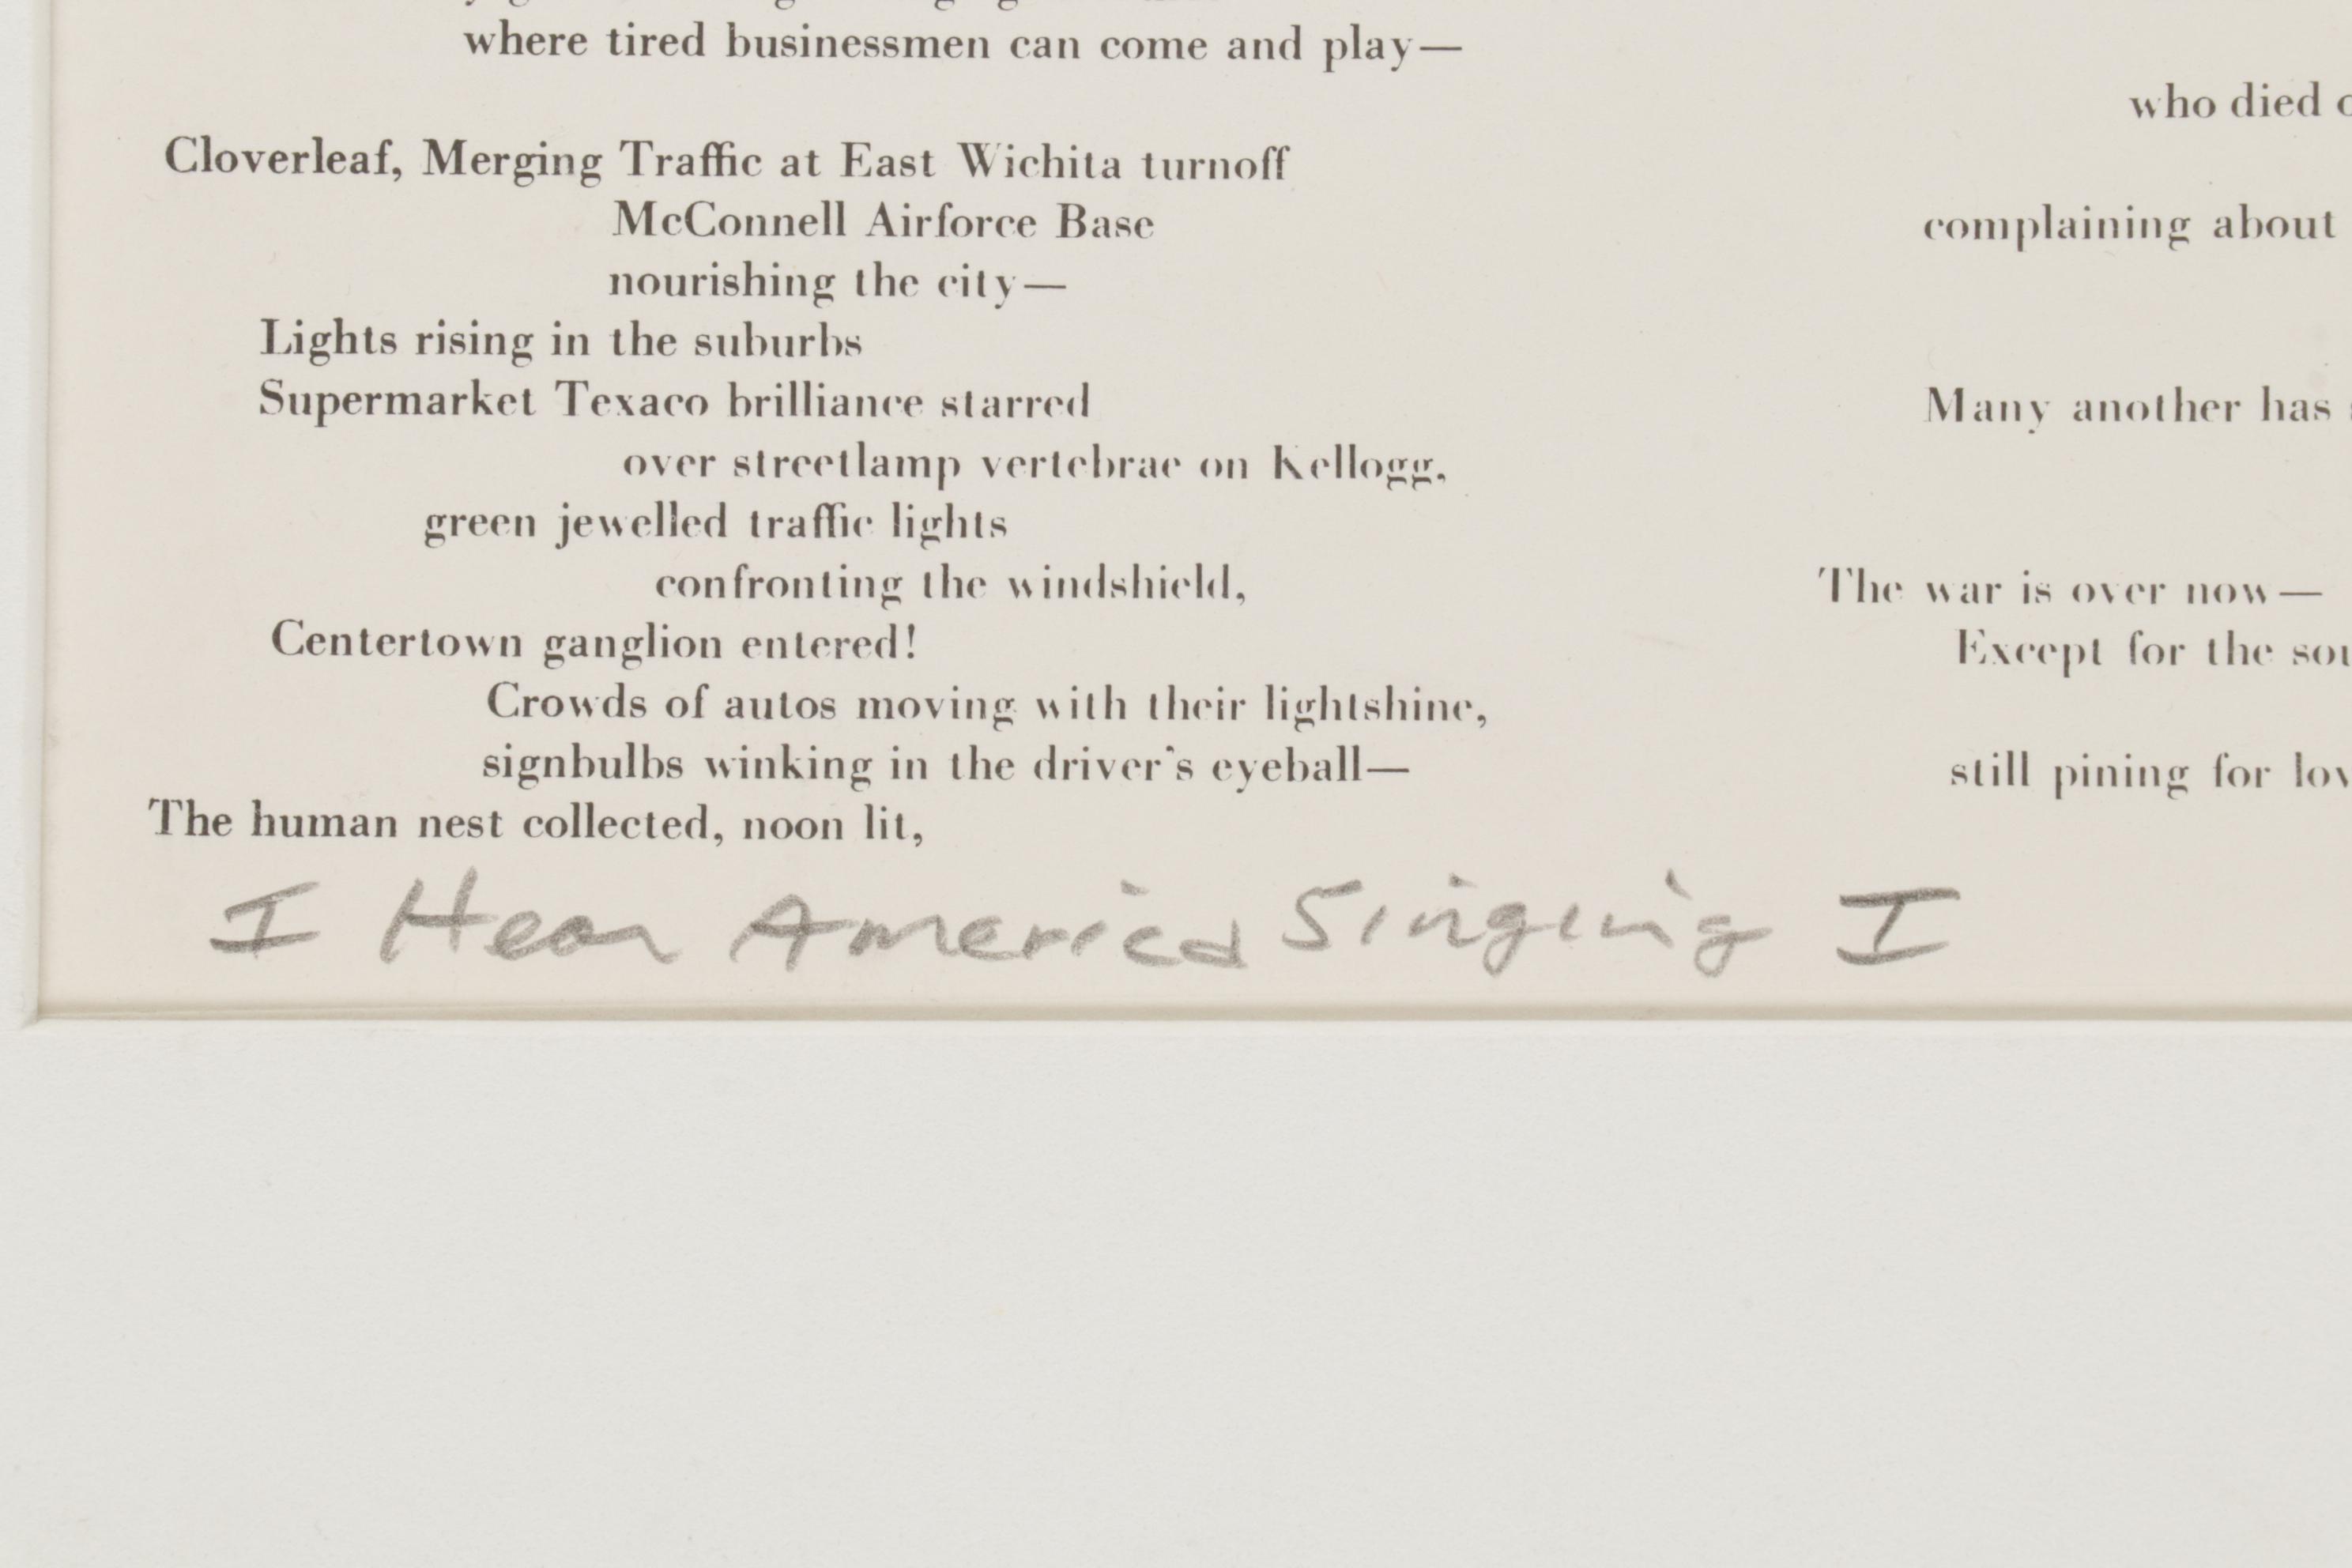 where tired businessmen can come and play—
Cloverleaf, Merging Traffic at East Wichita turnoff
McConnell Airforce Base
nourishing the city—
Lights rising in the suburbs
Supermarket Texaco brilliance starred
over streetlamp vertebrae on Kellogg,
green jewelled traffic lights
confronting the windshield,
Centertown ganglion entered!
Crowds of autos moving with their lightshine,
signbulbs winking in the driver's eyeball—
The human nest collected, noon lit,
who died
complaining about
Many another has
The war is over now—
Except for the
still pining for
I Hear America Singing I